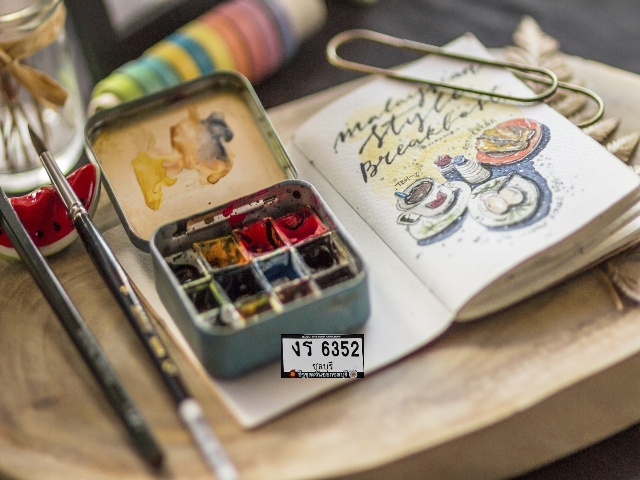 malaysian
style
Breakfast
งร 6352
ชลบุรี